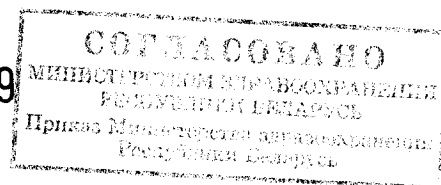 9
СОГЛАСОВАНО
МИНИСТЕРСТВОМ ЗДРАВООХРАНЕНИЯ
РЕСПУБЛИКИ БЕЛАРУСЬ
Приказ Министерства здравоохранения
Республики Беларусь